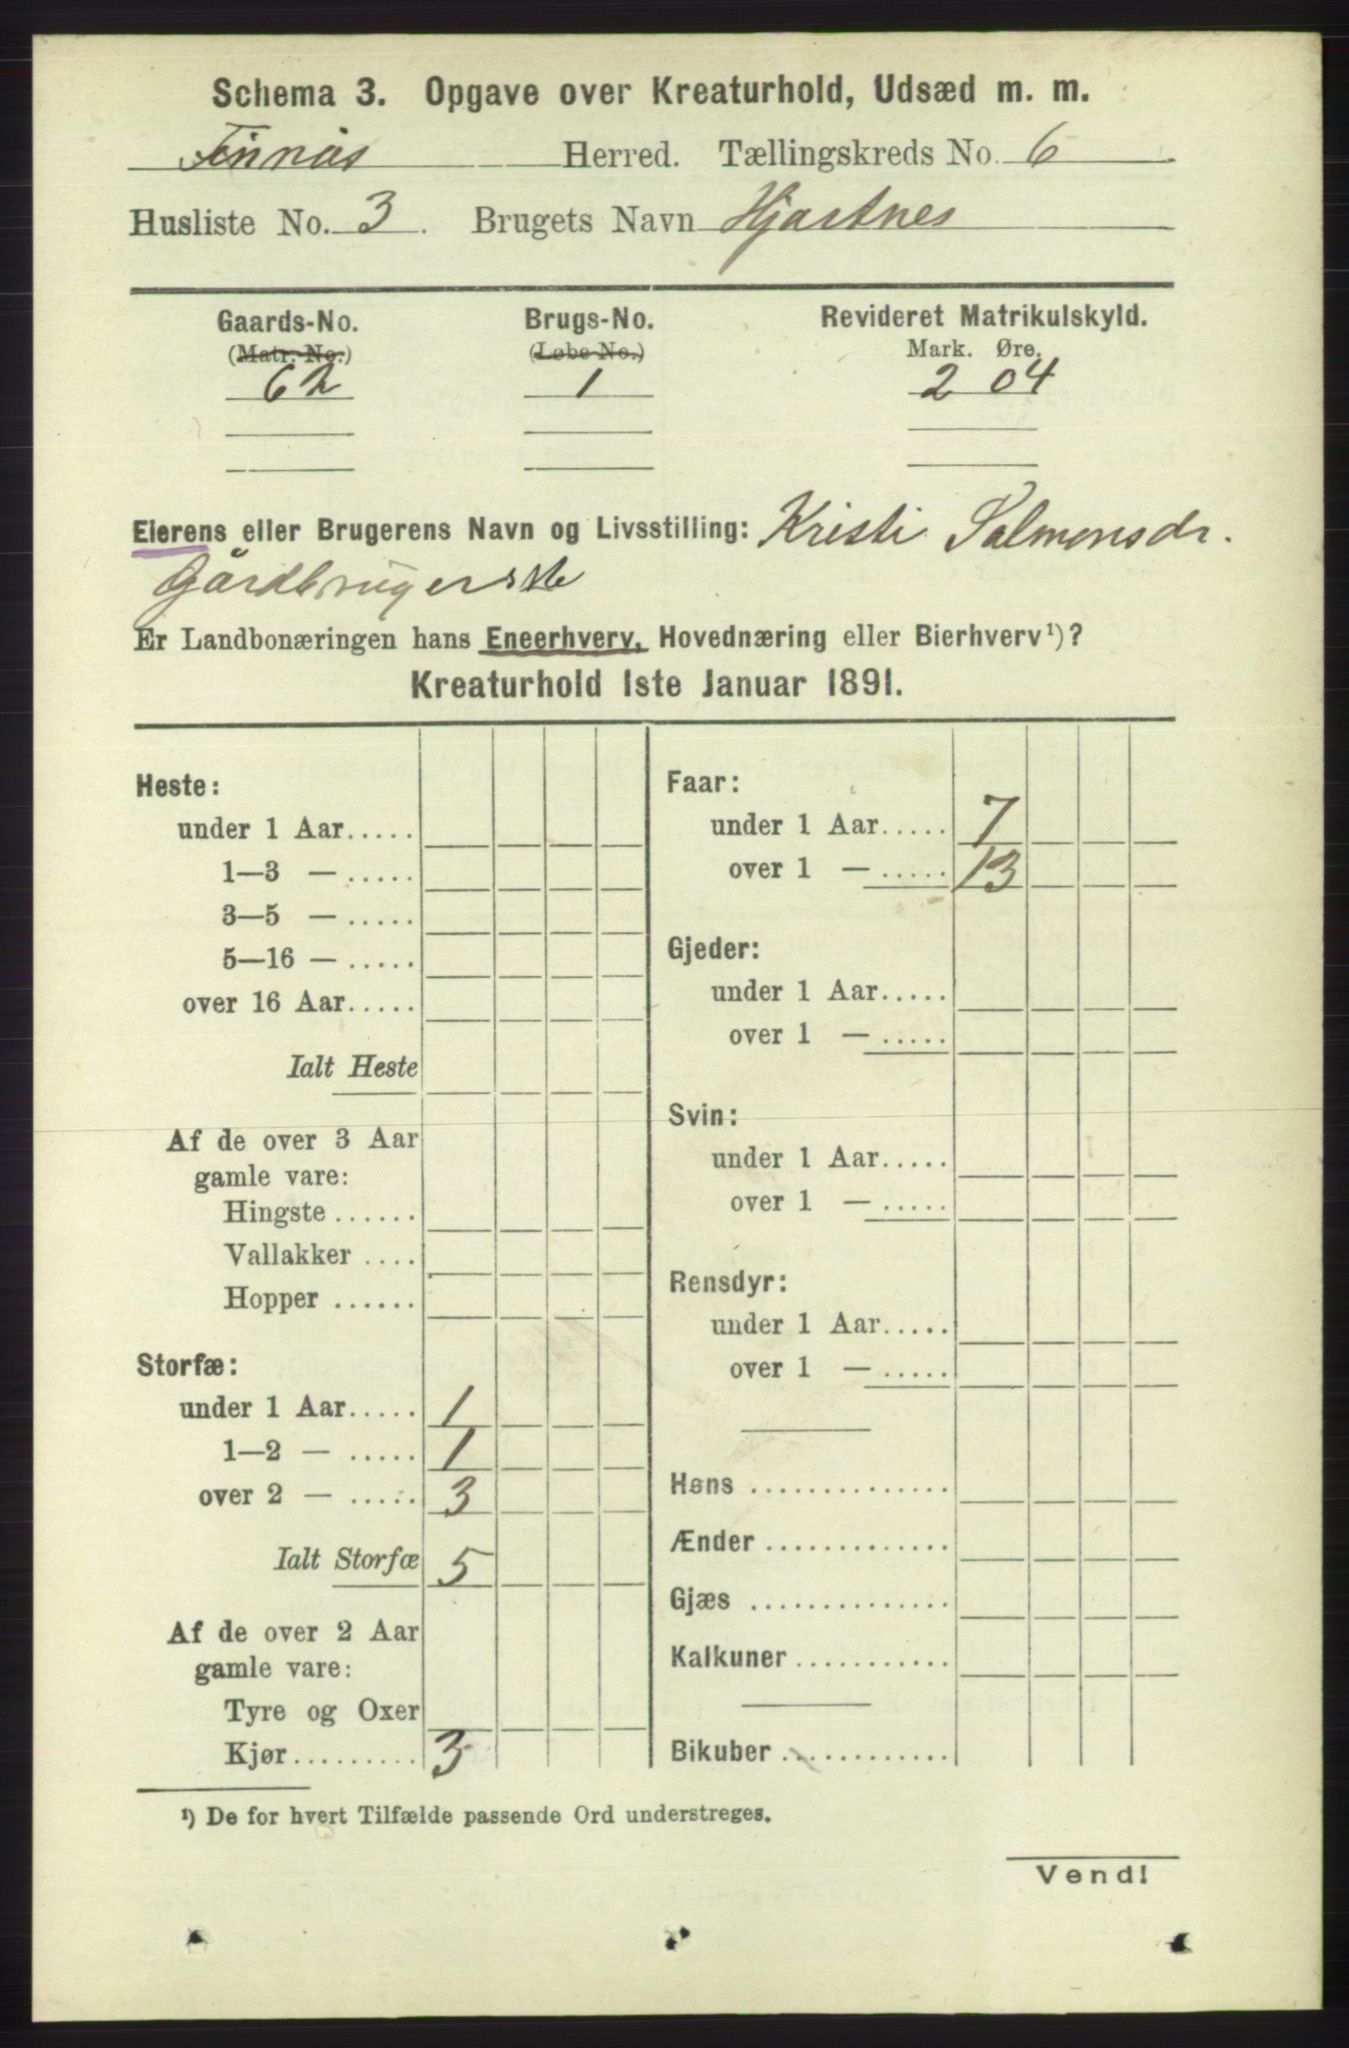 Schema 3. Opgave over Kreaturhold, Udsæd m. m.
Finnås Herred. Tællingskreds No. 6
Husliste No. 3. Brugets Navn Hjartnes
Gaards-No. Brugs-No. Revideret Matrikulskyld.
(Matr. No.) (Løbe No.) Mark. Øre.
62 1 2 04
Eierens eller Brugerens Navn og Livsstilling: Kristi Salmonsdr.
Gårdbrugerske
Er Landbonæringen hans Eneerhverv, Hovednæring eller Bierhverv¹)?
Kreaturhold 1ste Januar 1891.
Heste:
under 1 Aar.....
1—3 — .....
3—5 — .....
5—16 — .....
over 16 Aar.....
Ialt Heste
Af de over 3 Aar
gamle vare:
Hingste ......
Vallakker ....
Hopper ......
Storfæ:
under 1 Aar..... 1
1—2 — ..... 1
over 2 — ..... 3
Ialt Storfæ 5
Af de over 2 Aar
gamle vare:
Tyre og Oxer
Kjør......... 3
Faar:
under 1 Aar..... 7
over 1 — ..... 13
Gjeder:
under 1 Aar.....
over 1 — .....
Svin:
under 1 Aar.....
over 1 — .....
Rensdyr:
under 1 Aar.....
over 1 — .....
Høns ..............
Ænder .............
Gjæs ..............
Kalkuner...........
Bikuber ............
¹) De for hvert Tilfælde passende Ord understreges.
Vend!